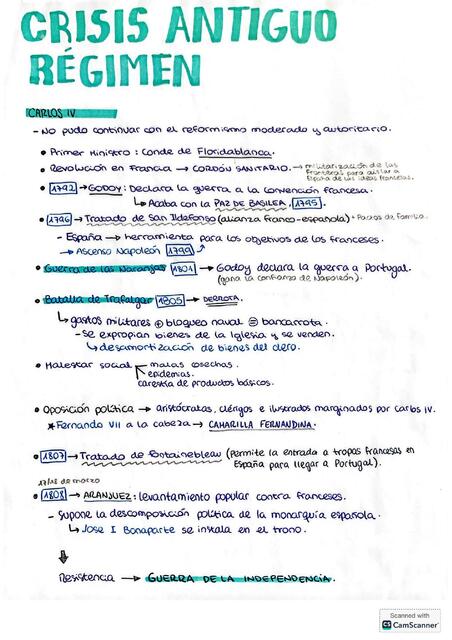 CRISIS ANTIGUO
RÉGIMEN
CARLOS IV
- No pudo continuar con el reformismo moderado y autoritario.
• Primer Ministro: Conde de Floridablanca.
• Revolución en Francia → CORDÓN SANITARIO. → militarización de las
fronteras para aislar a
España de las ideas francesas.
• 1792 → GODOY: Declara la guerra a la Convención francesa.
↳ Acaba con la PAZ DE BASILEA, 1795.
• 1796 → Tratado de San Ildefonso (alianza franco-española) + Pactos de Familia.
- España → herramienta para los objetivos de los franceses.
→ Ascenso Napoleón 1799
• Guerra de las Naranjas 1801 → Godoy declara la guerra a Portugal.
(gana la confianza de Napoleón).
• Batalla de Trafalgar 1805 → DERROTA.
↳ gastos militares ⊕ bloqueo naval = bancarrota.
- Se expropian bienes de la Iglesia y se venden.
↳ desamortización de bienes del clero.
• Malestar social malas cosechas.
epidemias.
carestía de productos básicos.
• Oposición política → aristócratas, clérigos e ilustrados marginados por Carlos IV.
★ Fernando VII a la cabeza → CAMARILLA FERNANDINA.
• 1807 → Tratado de Fontainebleau (Permite la entrada a tropas francesas en
España para llegar a Portugal).
17/18 de marzo
• 1808 → ARANJUEZ: levantamiento popular contra franceses.
- Supone la descomposición política de la monarquía española.
↳ Jose I Bonaparte se instala en el trono.
↓
Resistencia → GUERRA DE LA INDEPENDENCIA.
Scanned with
CS CamScanner